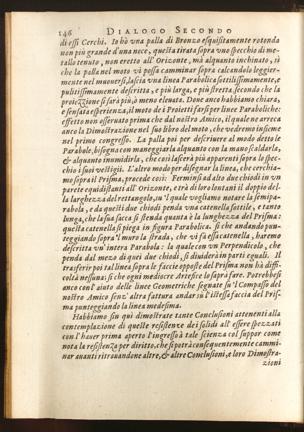 146 DIALOGO SECONDO
di essi Cerchi. Io hò vna palla di Bronzo esquisitamente rotonda
non più grande d'una noce, questa tirata sopra vno specchio di me-
tallo tenuto, non eretto all'Orizonte, mà alquanto inchinato, sì
che la palla nel moto vi possa camminar sopra calcandolo leggier-
mente nel muouersi, lascia vna linea Parabolica sottilissimamente, e
pulitissimamente descritta, e più larga, e più stretta, secondo che la
proiezzione si sarà più, ò meno eleuata. Doue anco habbiamo chiara,
e sensata esperienza, il moto de i Proietti farsi per linee Paraboliche:
effetto non osseruato prima che dal nostro Amico, il quale ne arreca
anco la Dimostrazione nel suo libro del moto, che vedremo insieme
nel primo congresso. La palla poi per descriuere al modo detto le
Parabole, bisogna con maneggiarla alquanto con la mano scaldarla,
& alquanto inumidirla, che così lascerà più apparenti sopra lo spec-
chio i suoi vestigii. L'altro modo per disegnar la linea, che cerchia-
mo sopra il Prisma, procede così: Ferminsi ad alto due chiodi in vn
parete equidistanti all'Orizonte, e trà di loro lontani il doppio del-
la larghezza del rettangolo, su 'l quale vogliamo notare la semipa-
rabola, e da questi due chiodi penda vna catenella sottile, e tanto
lunga, che la sua sacca si stenda quanta è la lunghezza del Prisma:
questa catenella si piega in figura Parabolica. sì che andando pun-
teggiando sopra 'l muro la strada, che vi fà essa catenella, haremo
descritta vn'intera Parabola: la quale con vn Perpendicolo, che
penda dal mezo di quei due chiodi, si diuiderà in parti eguali. Il
trasferir poi tal linea sopra le faccie opposte del Prisma non hà diffi-
coltà nessuna; sì che ogni mediocre Artefice lo saprà fare. Potrebbesi
anco con l'aiuto delle linee Geometriche segnate su 'l Compasso del
nostro Amico senz'altra fattura andar su l'istessa faccia del Pris-
ma punteggiando la linea medesima.
Habbiamo sin quì dimostrate tante Conclusioni attenenti alla
contemplazione di queste resistenze de i solidi all'essere spezzati
con l'hauer prima aperto l'ingresso à tale scienza col suppor come
nota la resistenza per diritto, che si potrà conseguentemente cammi-
nar auanti ritrouandone altre, & altre Conclusioni, e loro Dimostra-
zioni